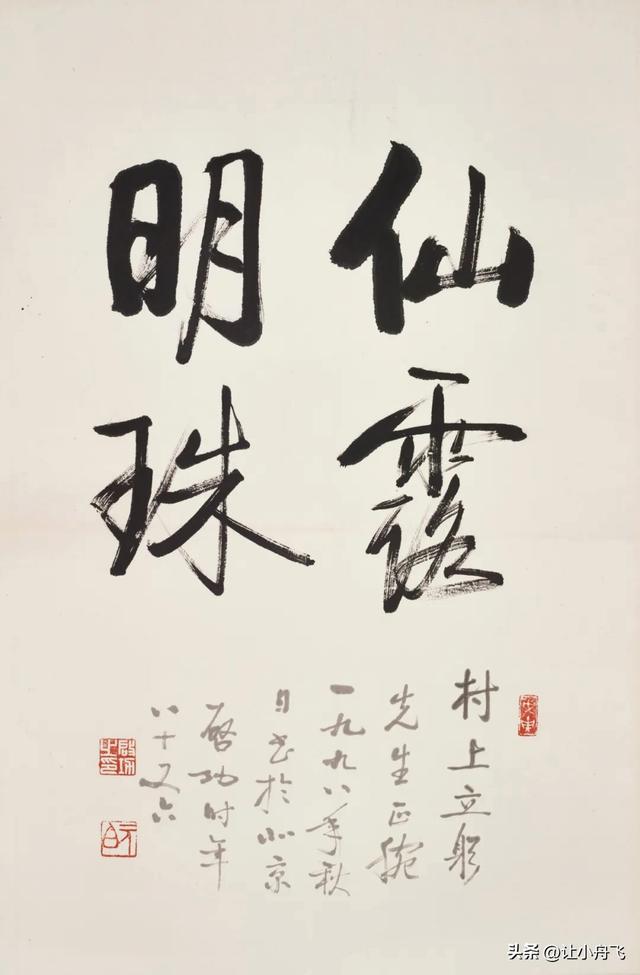 仙露
明珠
村上立躬
先生正腕
一九九八年秋
日书於北京
启功时年
八十又六
头条 @让小舟飞